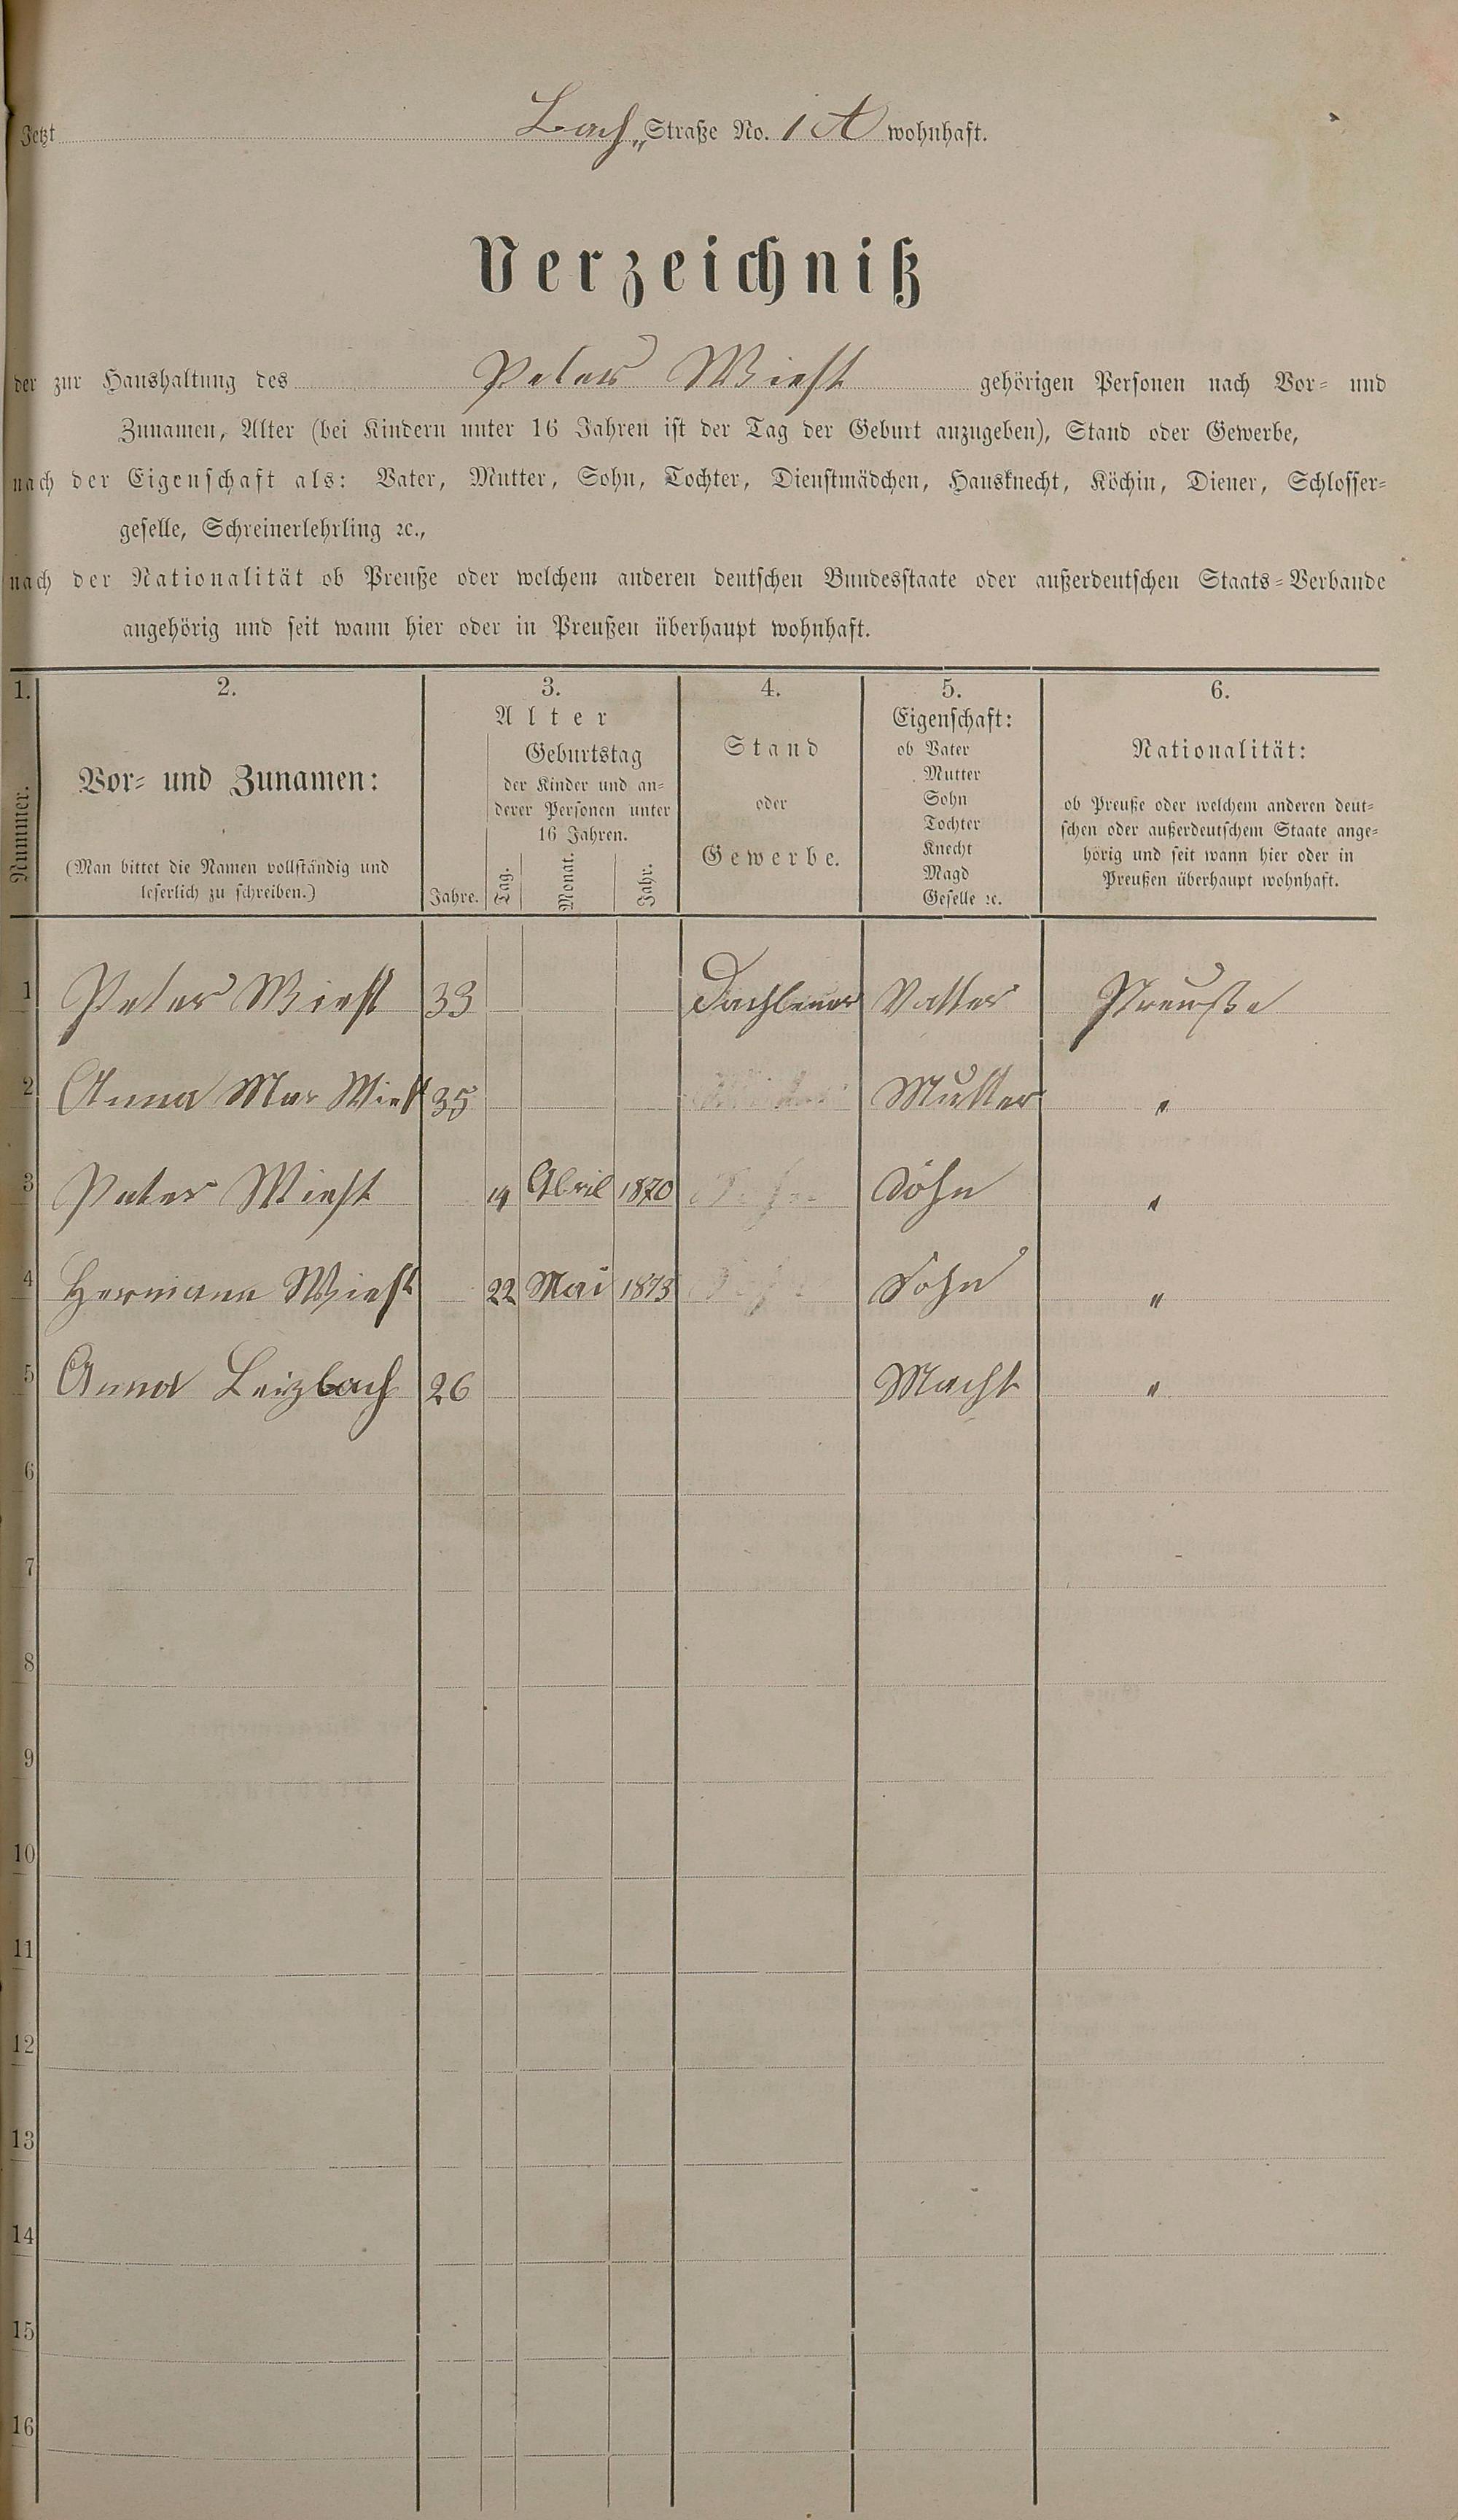 Jetzt Bach„Straße No. 1 A wohnhaft.
Verzeichniß
der zur Haushaltung des Peter Wiest gehörigen Personen nach Vor- und
Zunamen, Alter (bei Kindern unter 16 Jahren ist der Tag der Geburt anzugeben), Stand oder Gewerbe,
nach der Eigenschaft als: Vater, Mutter, Sohn, Tochter, Dienstmädchen, Hausknecht, Köchin, Diener, Schlosser-
geselle, Schreinerlehrling ꝛc.,
nach der Nationalität ob Preuße oder welchem anderen deutschen Bundesstaate oder außerdeutschen Staats-Verbande
angehörig und seit wann hier oder in Preußen überhaupt wohnhaft.
1. 2. 3. 4. 5. 6.
Nummer.
Vor- und Zunamen:
(Man bittet die Namen vollständig und
leserlich zu schreiben.)
Alter
Jahre.
Geburtstag
der Kinder und an-
derer Personen unter
16 Jahren.
Tag. Monat. Jahr.
Stand
oder
Gewerbe.
Eigenschaft:
ob Vater
Mutter
Sohn
Tochter
Knecht
Magd
Geselle ꝛc.
Nationalität:
ob Preuße oder welchem anderen deut-
schen oder außerdeutschem Staate ange-
hörig und seit wann hier oder in
Preußen überhaupt wohnhaft.
1 Peter Wiest 33 Vatter Preuße
2 Anna Mar Wiest 35 Mutter "
3 Peter Wiest 14 Abril 1870 Sohn "
4 Hermann Wiest 22 Mai 1873 Sohn "
5 Anna Leizbach 26 Macht "
6
7
8
9
10
11
12
13
14
15
16